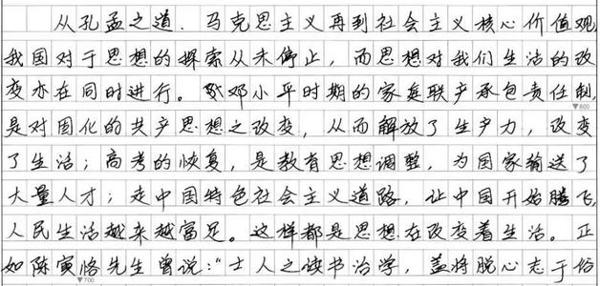 从孔孟之道、马克思主义再到社会主义核心价值观
我国对于思想的探索从未停止，而思想对我们生活的改
变亦在同时进行。邓小平时期的家庭联产承包责任制，
▼600
是对固化的共产思想之改变，从而解放了生产力，改变
了生活；高考的恢复，是教育思想调整，为国家输送了
大量人才；走中国特色社会主义道路，让中国开始腾飞
人民生活越来越富足。这样都是思想在改变着生活。正
如陈寅恪先生曾说：“士人之读书治学，盖将脱心志于俗
▼700